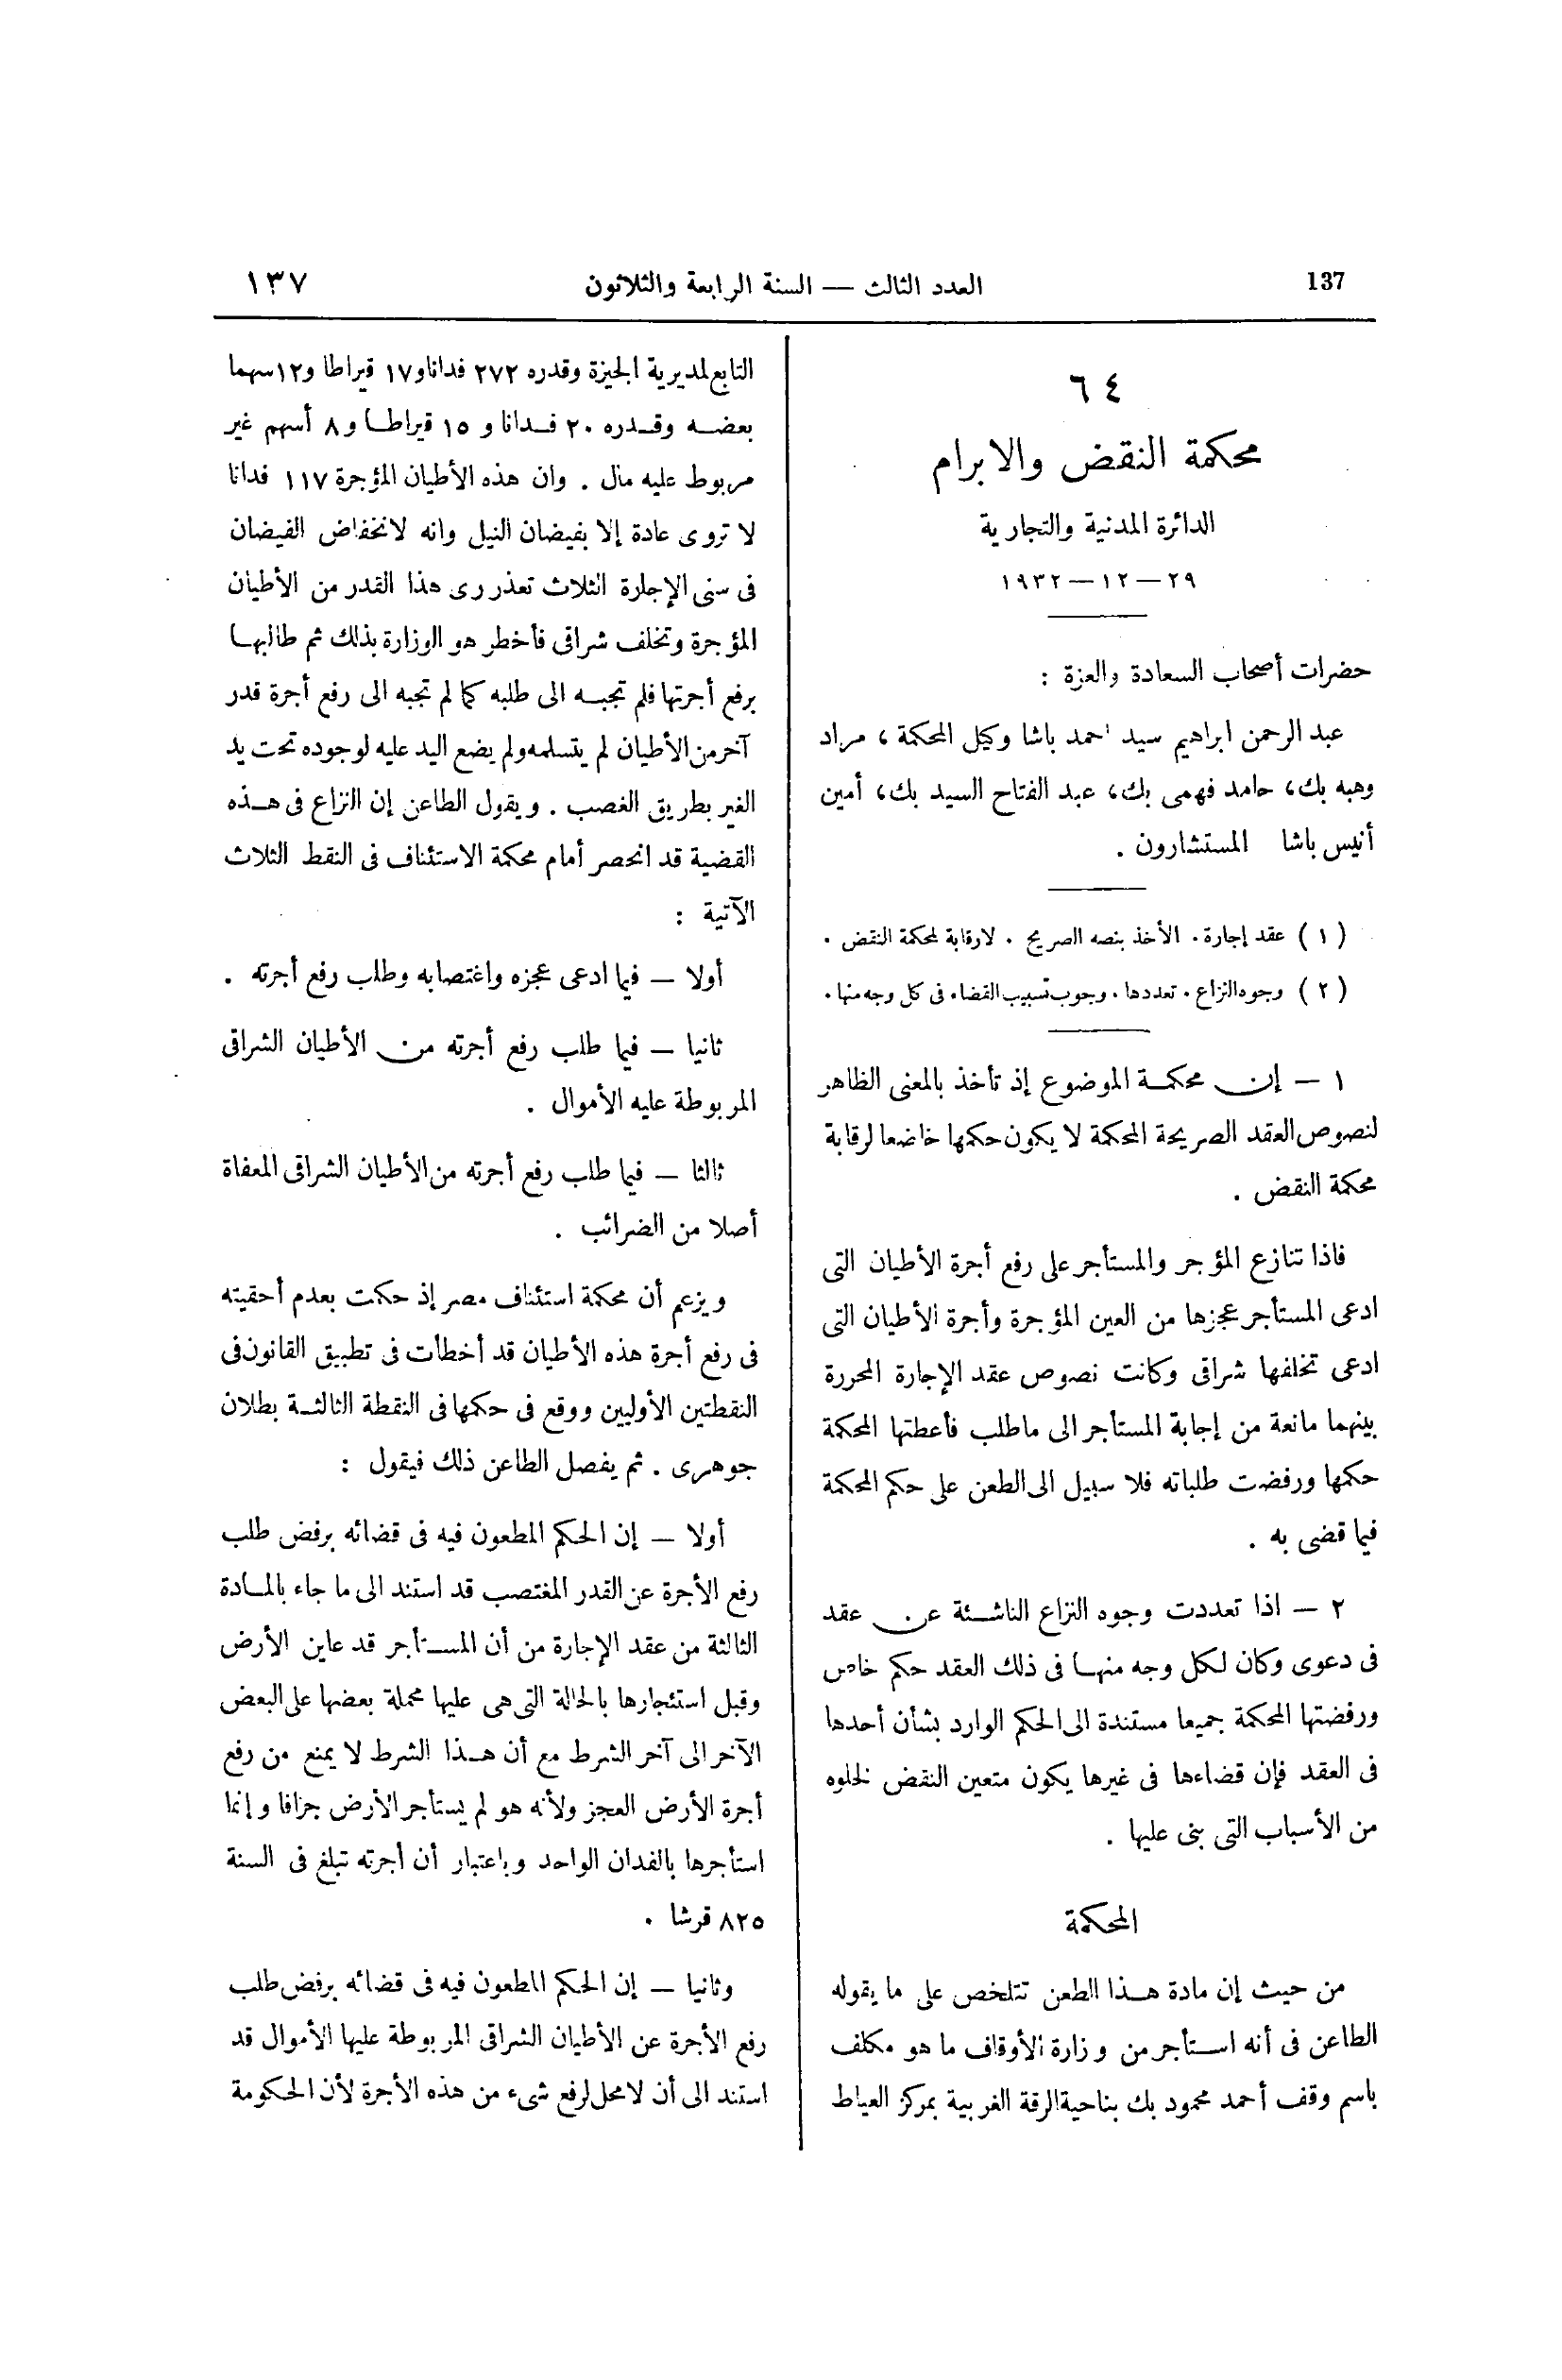 137
العدد الثالث — السنة الرابعة والثلاثون
١٣٧
٦٤
محكمة النقض والابرام
الدائرة المدنية والتجارية
٢٩ — ١٢ — ١٩٣٢
حضرات أصحاب السعادة والعزة :
عبد الرحمن ابراهيم سيد احمد باشا وكيل المحكمة ، مراد
وهبه بك ، حامد فهمى بك ، عبد الفتاح السيد بك ، أمين
أنيس باشا المستشارون .
( ١ ) عقد إجارة . الأخذ بنصه الصريح . لا رقابة لمحكمة النقض .
( ٢ ) وجوه النزاع . تعددها . وجوب تسبيب القضاء فى كل وجه منها .
١ — إن محكمة الموضوع إذ تأخذ بالمعنى الظاهر
لنصوص العقد الصريحة المحكمة لا يكون حكمها خاضعا لرقابة
محكمة النقض .
فاذا تنازع المؤجر والمستأجر على رفع أجرة الأطيان التى
ادعى المستأجر عجزها من العين المؤجرة وأجرة الأطيان التى
ادعى تخلفها شراقى وكانت نصوص عقد الإجارة المحررة
بينهما مانعة من إجابة المستأجر الى ماطلب فأعطتها المحكمة
حكمها ورفضت طلباته فلا سبيل الى الطعن على حكم المحكمة
فيما قضى به .
٢ — اذا تعددت وجوه النزاع الناشئة عن عقد
فى دعوى وكان لكل وجه منها فى ذلك العقد حكم خاص
ورفضتها المحكمة جميعا مستندة الى الحكم الوارد بشأن أحدها
فى العقد فإن قضاءها فى غيرها يكون متعين النقض لخلوه
من الأسباب التى بنى عليها .
المحكمة
من حيث إن مادة هذا الطعن تتلخص على ما يقوله
الطاعن فى أنه استأجر من وزارة الأوقاف ما هو مكلف
باسم وقف أحمد محمود بك بناحية الرقة الغربية بمركز العياط
التابع لمديرية الجيزة وقدره ٢٧٢ فدانا و١٧ قيراطا و١٢ سهما
بعضه وقدره ٢٠ فدانا و ١٥ قيراطا و ٨ أسهم غير
مربوط عليه مال . وان هذه الأطيان المؤجرة ١١٧ فدانا
لا تروى عادة إلا بفيضان النيل وانه لانخفاض الفيضان
فى سنى الإجارة الثلاث تعذر رى هذا القدر من الأطيان
المؤجرة وتخلف شراقى فأخطر هو الوزارة بذلك ثم طالبها
برفع أجرتها فلم تجبه الى طلبه كما لم تجبه الى رفع أجرة قدر
آخر من الأطيان لم يتسلمه ولم يضع اليد عليه لوجوده تحت يد
الغير بطريق الغصب . ويقول الطاعن إن النزاع فى هذه
القضية قد انحصر أمام محكمة الاستئناف فى النقط الثلاث
الآتية :
أولا — فيما ادعى عجزه واغتصابه وطلب رفع أجرته .
ثانيا — فيما طلب رفع أجرته من الأطيان الشراقى
المربوطة عليه الأموال .
ثالثا — فيما طلب رفع أجرته من الأطيان الشراقى المعفاة
أصلا من الضرائب .
ويزعم أن محكمة استئناف مصر إذ حكمت بعدم أحقيته
فى رفع أجرة هذه الأطيان قد أخطأت فى تطبيق القانون فى
النقطتين الأوليين ووقع فى حكمها فى النقطة الثالثة بطلان
جوهرى . ثم يفصل الطاعن ذلك فيقول :
أولا — إن الحكم المطعون فيه فى قضائه برفض طلب
رفع الأجرة عن القدر المغتصب قد استند الى ما جاء بالمادة
الثالثة من عقد الإجارة من أن المستأجر قد عاين الأرض
وقبل استئجارها بالحالة التى هى عليها محملة بعضها على البعض
الآخر الى آخر الشرط مع أن هذا الشرط لا يمنع من رفع
أجرة الأرض العجز ولأنه هو لم يستأجر الأرض جزافا وإنما
استأجرها بالفدان الواحد وباعتبار أن أجرته تبلغ فى السنة
٨٢٥ قرشا .
وثانيا — إن الحكم المطعون فيه فى قضائه برفض طلب
رفع الأجرة عن الأطيان الشراقى المربوطة عليها الأموال قد
استند الى أن لا محل لرفع شىء من هذه الأجرة لأن الحكومة